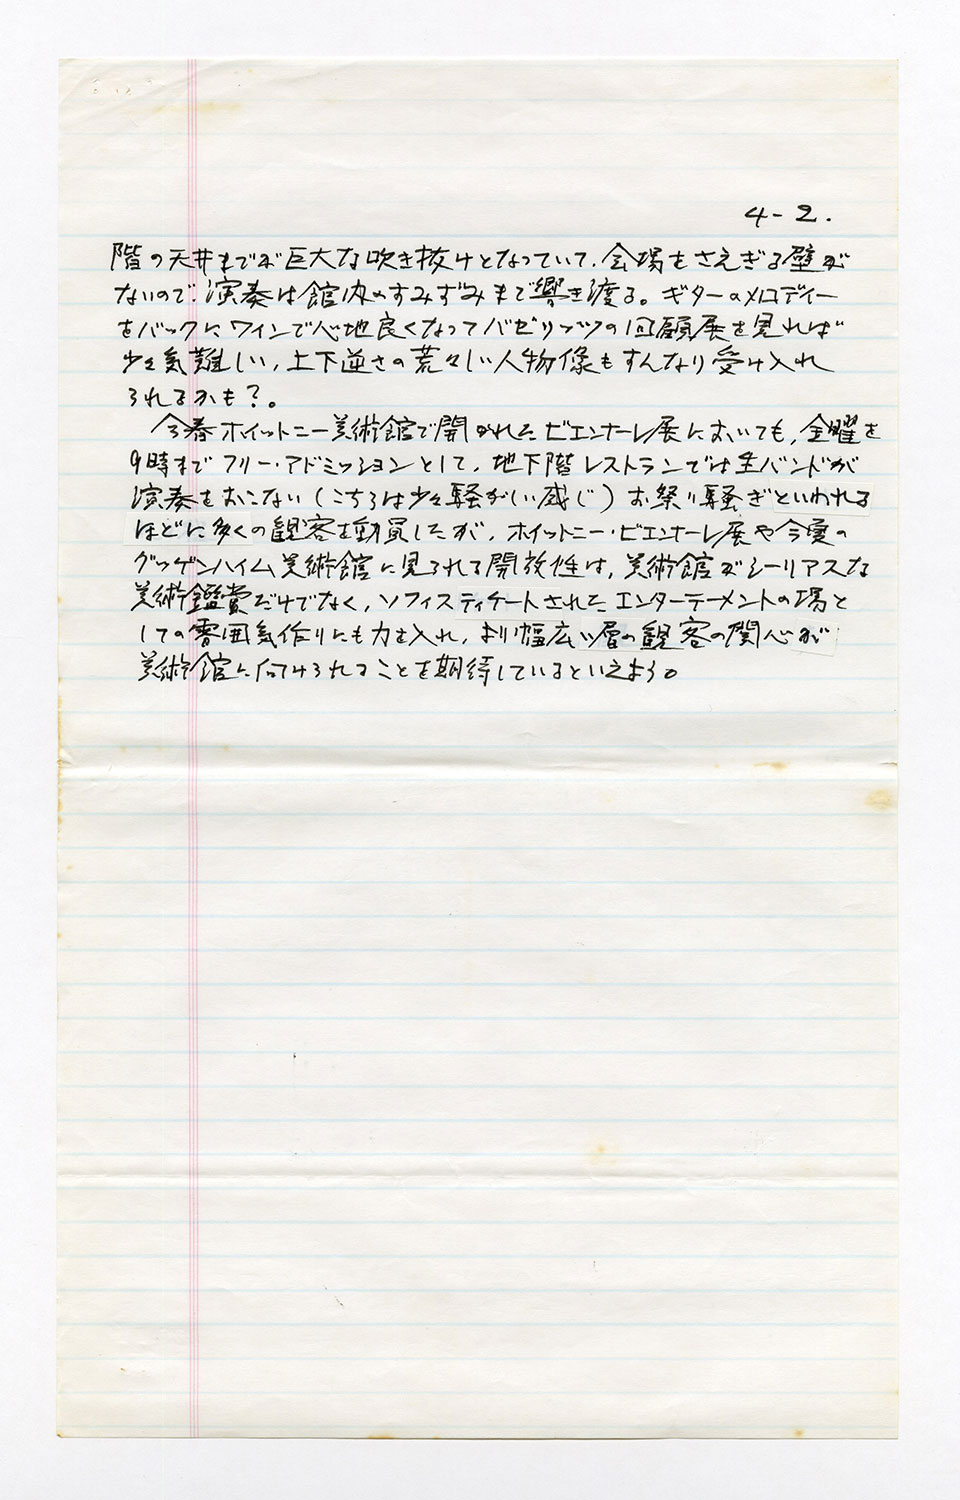 4-2.
階の天井までが巨大な吹き抜けとなっていて、会場をさえぎる壁が
ないので、演奏は館内のすみずみまで響き渡る。ギターのメロディー
をバックにワインで心地良くなってバゼリッツの回顧展を見れば
少々気難しい、上下逆さの荒々しい人物像もすんなり受け入れ
られるかも?。
今春ホイットニー美術館で開かれたビエンナーレ展においても、金曜を
9時までフリー・アドミッションとして、地下階レストランでは生バンドが
演奏をおこない(こちらは少々騒がしい感じ)お祭り騒ぎといわれる
ほどに多くの観客を動員したが、ホイットニー・ビエンナーレ展や今夏の
グッゲンハイム美術館に見られる開放性は、美術館がシーリアスな
美術鑑賞だけでなく、ソフィスティケートされたエンターテーメントの場と
しての雰囲気作りにも力を入れ、より幅広い層の観客の関心が
美術館に向けられることを期待しているといえよう。